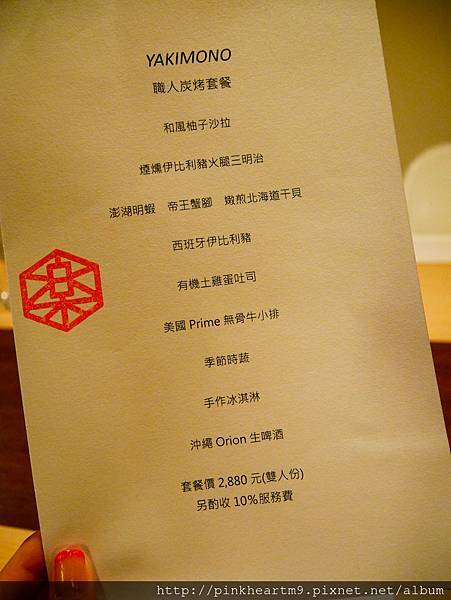 YAKIMONO
職人炭烤套餐
和風柚子沙拉
煙燻伊比利豬火腿三明治
澎湖明蝦 帝王蟹腳 嫩煎北海道干貝
西班牙伊比利豬
有機土雞蛋吐司
美國 Prime 無骨牛小排
季節時蔬
手作冰淇淋
沖繩 Orion 生啤酒
套餐價 2,880 元(雙人份)
另酌收 10%服務費
http://pinkheartm9.pixnet.net/album